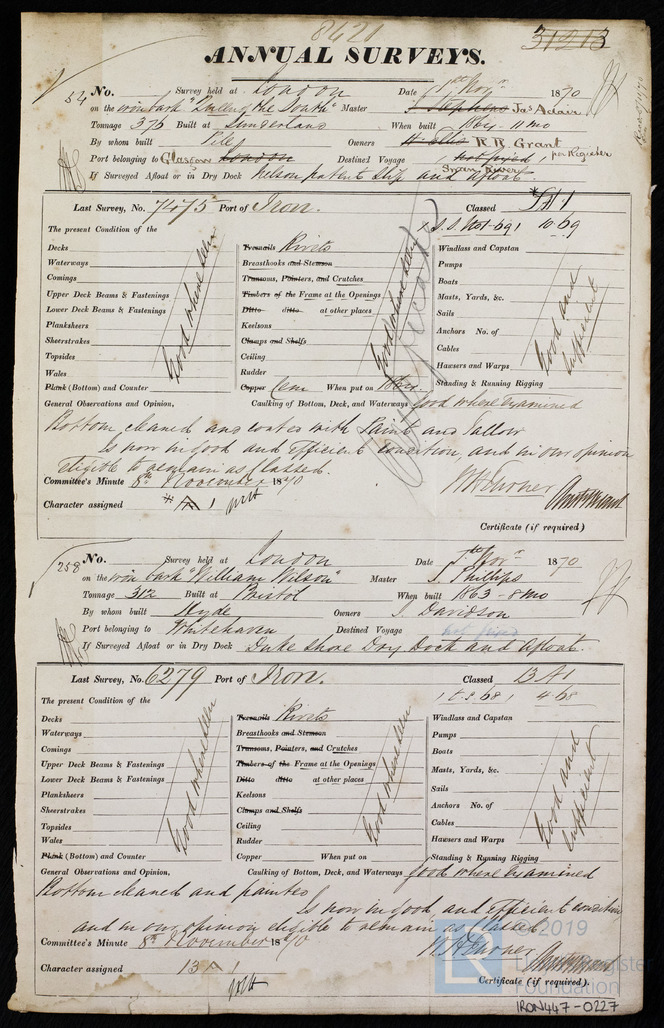 8421
31213
ANNUAL SURVEYS.
54 No. Survey held at London Date 1st Novr 1870
on the iron bark "Bulley the South" Master J Stephens Jas Adair
Tonnage 376 Built at Sunderland When built 1864 - 11 mo
By whom built Pile Owners H Ellis R R Grant
per Register
Port belonging to Glasgow London Destined Voyage not fixed
Swan River
If Surveyed Afloat or in Dry Dock Nelson patent slip and afloat.
Last Survey, No. 7475 Port of Iron. Classed
S.S. 69 10-69
The present Condition of the
Decks
Waterways
Comings
Upper Deck Beams & Fastenings
Lower Deck Beams & Fastenings
Planksheers
Sheerstrakes
Topsides
Wales
Plank (Bottom) and Counter
Good where seen
Treenails Rivets
Breasthooks and Stemson
Transoms, Pointers, and Crutches
Timbers of the Frame at the Openings
Ditto ditto at other places
Keelsons
Clamps and Shelfs
Ceiling
Rudder
Copper Cem When put on
Good where seen
Windlass and Capstan
Pumps
Boats
Masts, Yards, &c.
Sails
Anchors No. of
Cables
Hawsers and Warps
Standing & Running Rigging
Good and sufficient
General Observations and Opinion, Caulking of Bottom, Deck, and Waterways good where examined
Bottom cleaned and coated with Paint and Tallow
Is now in good and efficient condition, and in our opinion
eligible to remain as classed.
Committee's Minute 8th November 1870
Character assigned * A 1
Certificate (if required)
258 No. Survey held at London Date 1st Novr 1870
on the iron bark "William Wilson" Master J. Phillips
Tonnage 312 Built at Bristol When built 1863 - 8 mo
By whom built Hyde Owners J. Davidson
Port belonging to Whitehaven Destined Voyage not fixed
If Surveyed Afloat or in Dry Dock Duke Shore Dry Dock and afloat.
Last Survey, No. 6279 Port of Iron. Classed B A1
68 4-68
The present Condition of the
Decks
Waterways
Comings
Upper Deck Beams & Fastenings
Lower Deck Beams & Fastenings
Planksheers
Sheerstrakes
Topsides
Wales
Plank (Bottom) and Counter
Good where seen
Treenails Rivets
Breasthooks and Stemson
Transoms, Pointers, and Crutches
Timbers of the Frame at the Openings
Ditto ditto at other places
Keelsons
Clamps and Shelfs
Ceiling
Rudder
Copper When put on
Good where seen
Windlass and Capstan
Pumps
Boats
Masts, Yards, &c.
Sails
Anchors No. of
Cables
Hawsers and Warps
Standing & Running Rigging
Good and sufficient
General Observations and Opinion, Caulking of Bottom, Deck, and Waterways good where examined
Bottom cleaned and painted
Is now in good and efficient condition
and in our opinion eligible to remain as classed.
Committee's Minute 8th November 1870
Character assigned B A 1
Certificate (if required)
© 2019
Lloyd's Register
Foundation
IRON447-0227